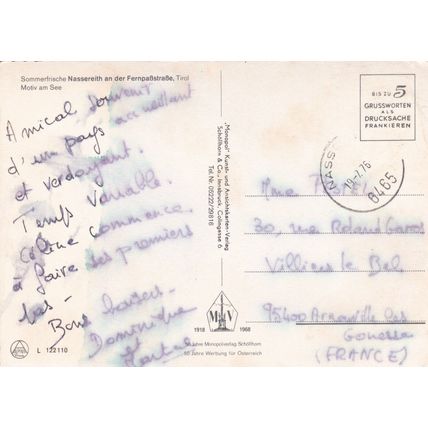 Sommerfrische Nassereith an der Fernpaßstraße, Tirol
Motiv am See
Amical souvenir
d'un pays accueillant
et verdoyant.
Temps variable.
commence
à faire des premiers
pas -
Bons baisers -
Dominique
et
L 122110
"Monopol" Kunst- und Ansichtskarten-Verlag
Schöllhorn & Co., Innsbruck, Collingasse 6
Tel. Nr. 05222/29816
M V
1918 1968
50 Jahre Monopolverlag Schöllhorn
50 Jahre Werbung für Österreich
BIS ZU 5
GRUSSWORTEN
ALS
DRUCKSACHE
FRANKIEREN
NASS
19-7.76
6465
Mme
30, rue Roland Garros
Villiers le Bel
95400 Arnouville les
Gonesse
(FRANCE)